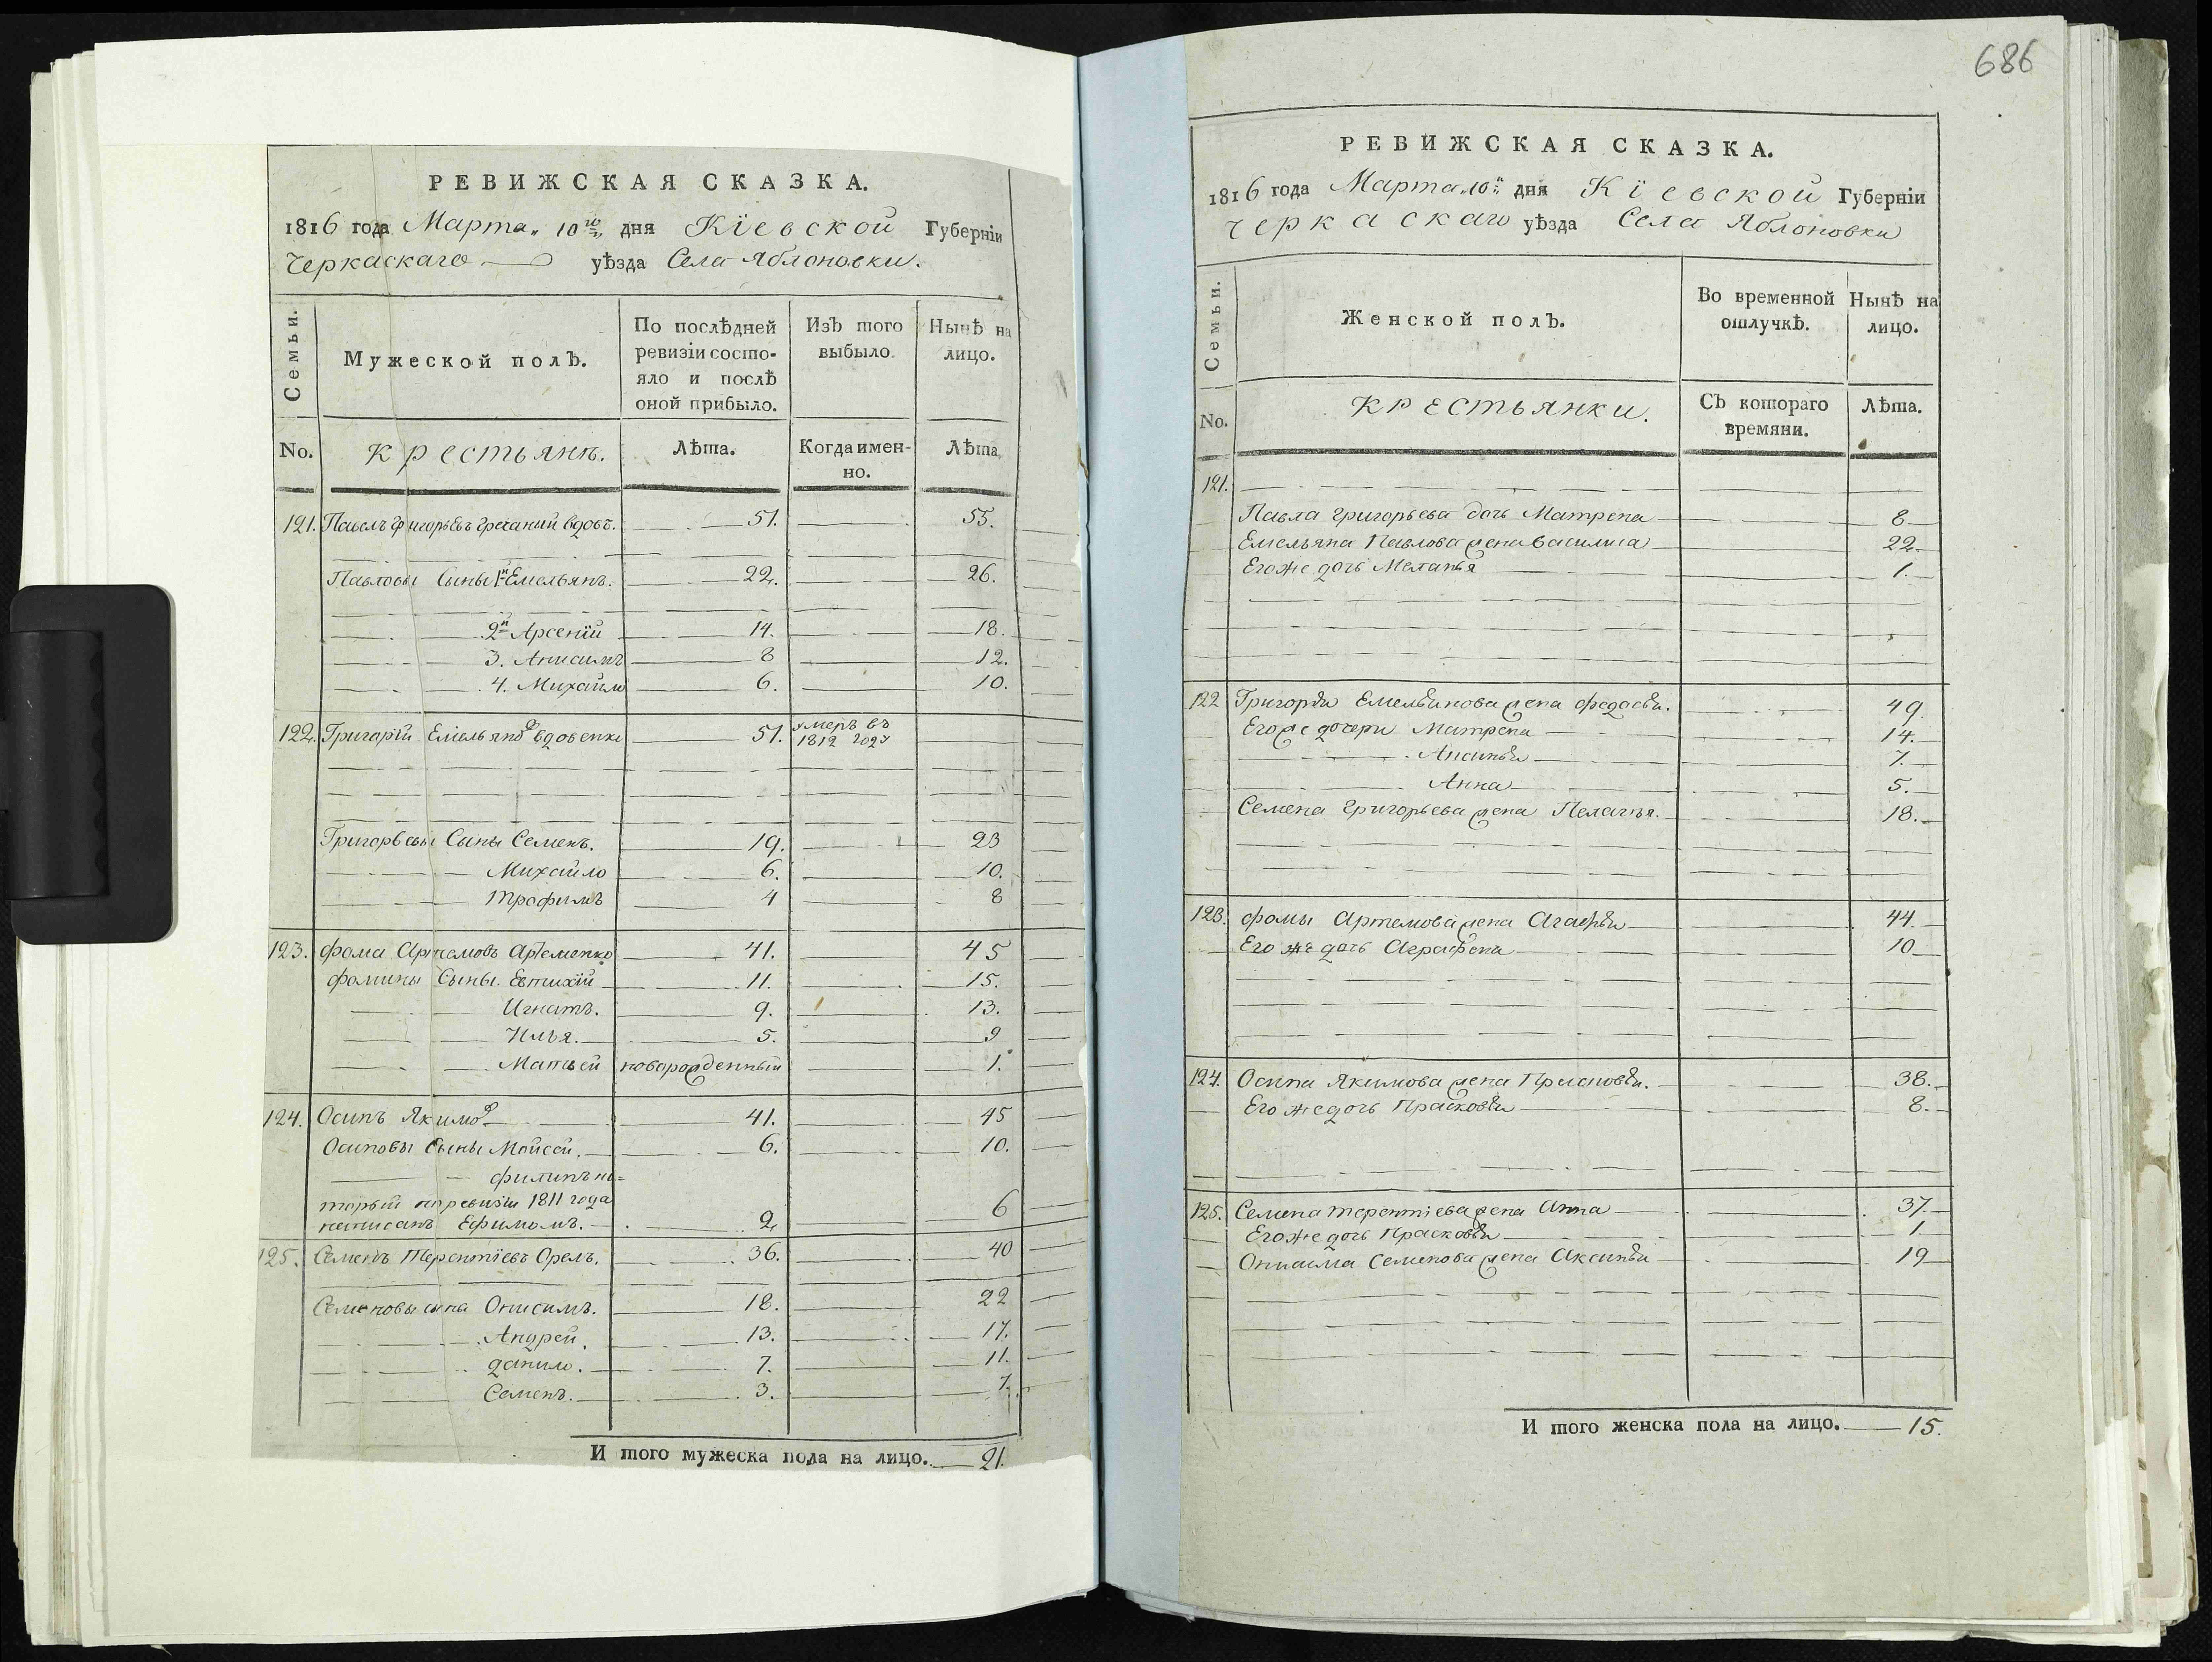 686
РЕВИЖСКАЯ СКАЗКА.
1816 года Марта 10го дня Кіевской Губерніи
Черкаскаго уѣзда Села Яблоновки.
Семьи.
Мужеской полъ.
По послѣдней ревизіи состо-
яло и послѣ
оной прибыло.
Изъ того выбыло.
Нынѣ на лицо.
No. Крестьянъ. Лѣта. Когда имен-
но. Лѣта
121. Павелъ Григорьевъ Гречаний вдовъ. 51. 55.
Павловы Сыны 1й Емельянъ. 22. 26.
2й Арсеній 14. 18.
3. Анисимъ 8 12.
4. Михайло 6. 10.
122. Григорій Емельяновъ Вдовенко 51. умеръ въ
1812 году
Григорьевы Сыны Семенъ. 19. 23
Михайло 6. 10.
Трофимъ 4 8
123. Фома Артемовъ Артеменко 41. 45
Фомины Сыны. Евтихій 11. 15.
Игнатъ. 9. 13.
Илья. 5. 9
Матвей новорожденный 1.
124. Осипъ Якимовъ 41. 45
Осиповы Сыны Мойсей. 6. 10.
Филипъ ко=
торый по ревизіи 1811 года
написанъ Ефимомъ. 2 6
125. Семенъ Терентіевъ Орелъ. 36. 40
Семеновы сына Онисимъ. 18. 22
Андрей. 13. 17.
Данило. 7. 11.
Семенъ. 3. 7.
И того мужеска пола на лицо. 21.
РЕВИЖСКАЯ СКАЗКА.
1816 года Марта 10й дня Кіевской Губерніи
Черкаскаго уѣзда Села Яблоновки
Семьи.
Женской полъ.
Во временной отлучкѣ.
Нынѣ на лицо.
No. Крестьянки. Съ котораго
времяни. Лѣта.
121.
Павла Григорьева дочь Матрена 8
Емельяна Павлова жена Василиса 22
Его же дочь Меланья 1.
122 Григорія Емельянова жена Федосья. 49.
Его же дочери Матрена 14.
7.
Анна 5.
Семена Григорьева жена Пелагея. 18.
123. Фомы Артемова жена Агафья 44.
Его же дочь Аграфена 10
124. Осипа Якимова жена 38.
Его же дочь Прасковья 8.
125. Семена Терентіева жена Анна 37
Его же дочь Прасковья 1
Онисима Семенова жена Аксинья 19
И того женска пола на лицо. 15.